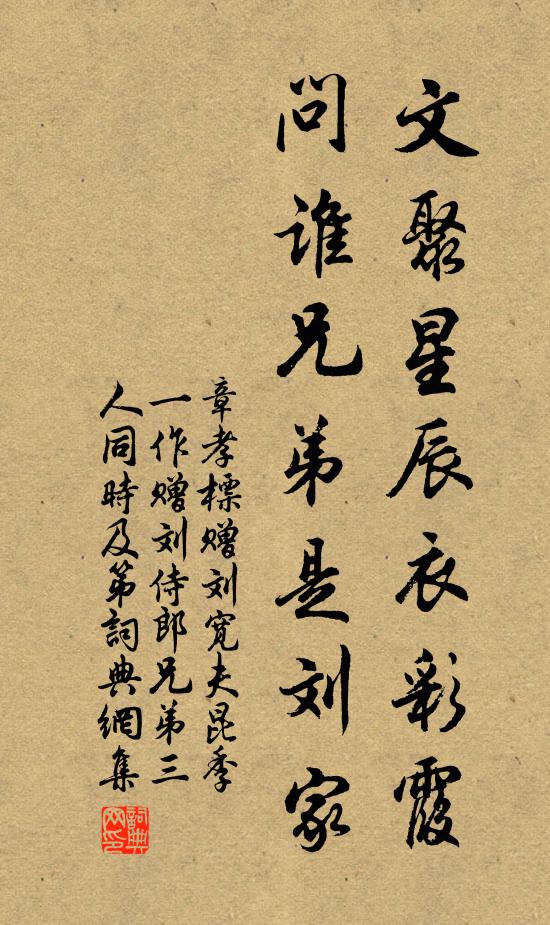 文聚星辰衣彩霞
问谁兄弟是刘家
章孝標赠刘宽夫昆季
一作赠刘侍郎兄弟三
人同時及第詞典網集
詞典
网印